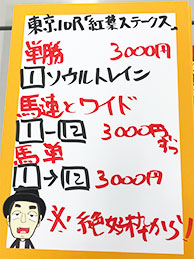 東京10R「紅葉ステークス」
単勝 3000円
1 ソウルトレイン
馬連とワイド
1-12 3000円ずつ
馬単
1→12 3000円
※絶好枠から!